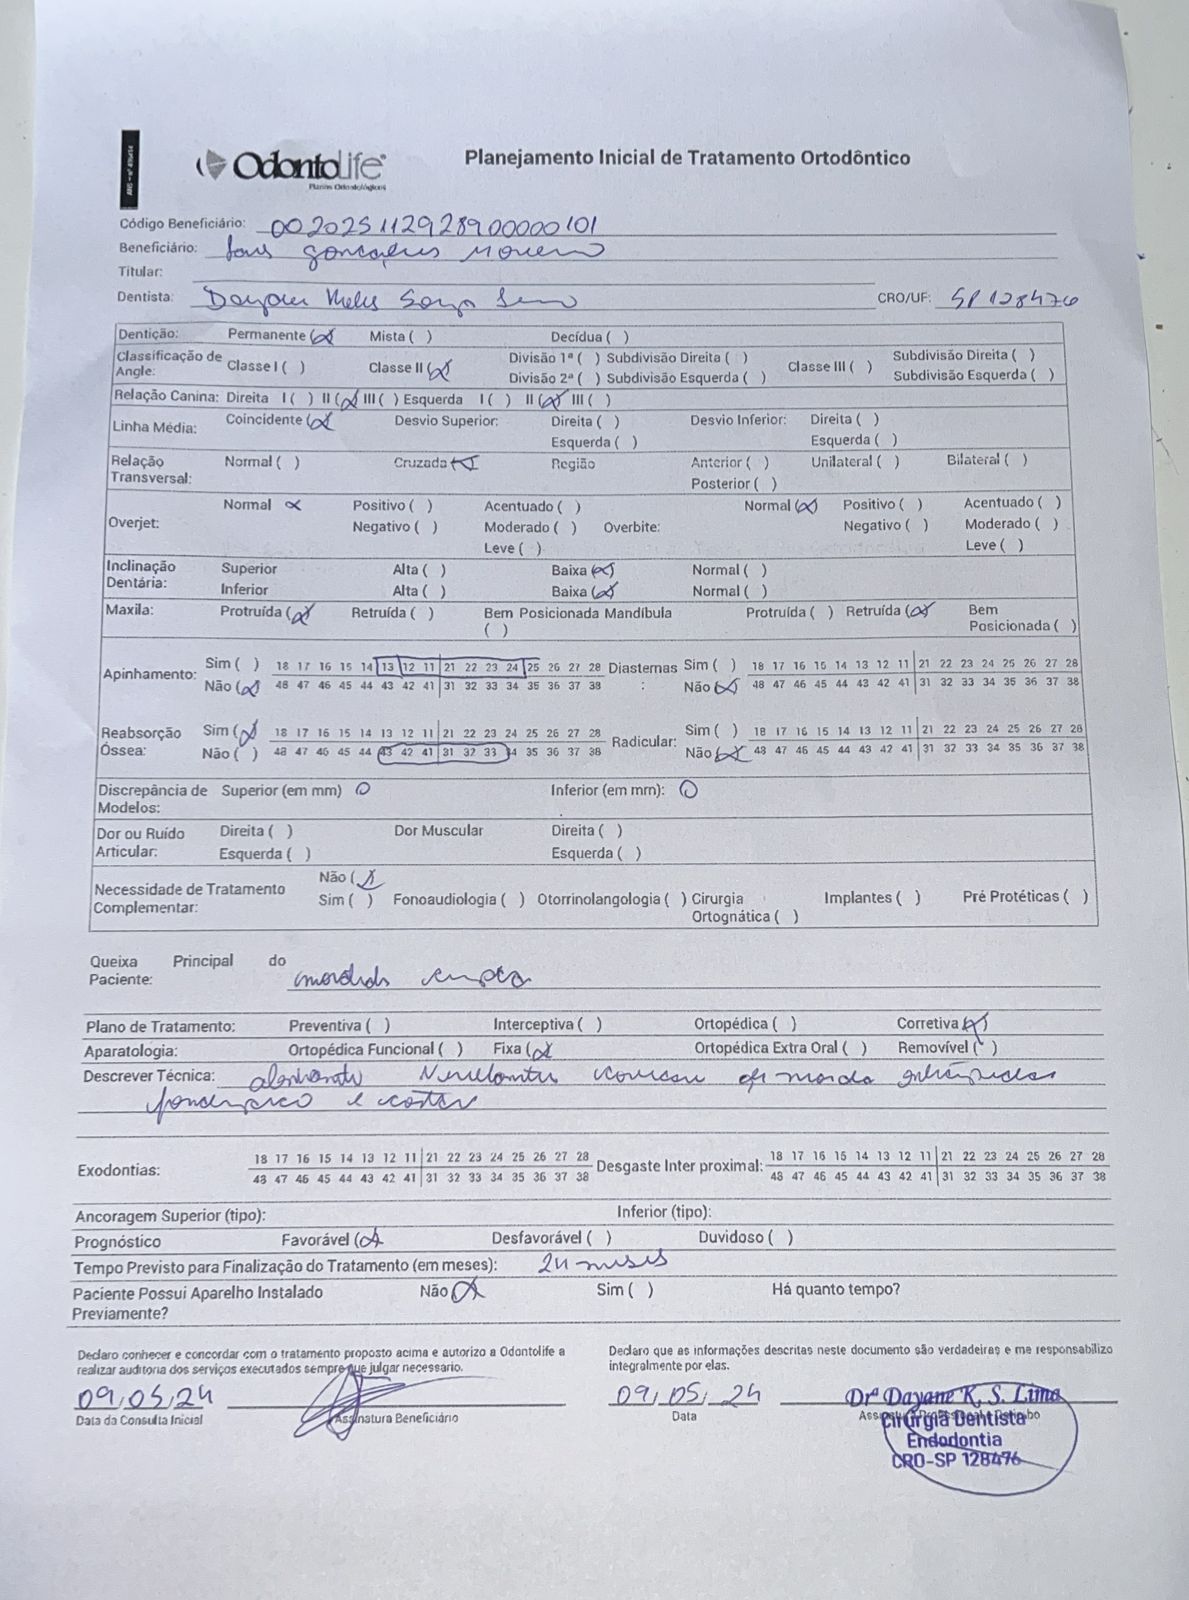 OdontoLife
Planos Odontológicos
Planejamento Inicial de Tratamento Ortodôntico
Código Beneficiário: 00202511292890000101
Beneficiário: Gonçalves Moreno
Titular:
Dentista: Dayane Souza Lima CRO/UF: SP 128476
Dentição: Permanente (x) Mista ( ) Decídua ( )
Classificação de Angle: Classe I ( ) Classe II (x) Divisão 1ª ( ) Subdivisão Direita ( ) Classe III ( ) Subdivisão Direita ( )
Divisão 2ª ( ) Subdivisão Esquerda ( ) Subdivisão Esquerda ( )
Relação Canina: Direita I ( ) II (x) III ( ) Esquerda I ( ) II (x) III ( )
Linha Média: Coincidente (x) Desvio Superior: Direita ( ) Desvio Inferior: Direita ( )
Esquerda ( ) Esquerda ( )
Relação Transversal: Normal ( ) Cruzada (x) Região Anterior ( ) Unilateral ( ) Bilateral ( )
Posterior ( )
Overjet: Normal x Positivo ( ) Acentuado ( ) Normal (x) Positivo ( ) Acentuado ( )
Negativo ( ) Moderado ( ) Overbite: Negativo ( ) Moderado ( )
Leve ( ) Leve ( )
Inclinação Dentária: Superior Alta ( ) Baixa (x) Normal ( )
Inferior Alta ( ) Baixa (x) Normal ( )
Maxila: Protruída (x) Retruída ( ) Bem Posicionada Mandíbula ( ) Protruída ( ) Retruída (x) Bem Posicionada ( )
Apinhamento: Sim ( ) 18 17 16 15 14 13 12 11 21 22 23 24 25 26 27 28 Diastemas : Sim ( ) 18 17 16 15 14 13 12 11 21 22 23 24 25 26 27 28
Não (x) 48 47 46 45 44 43 42 41 31 32 33 34 35 36 37 38 Não (x) 48 47 46 45 44 43 42 41 31 32 33 34 35 36 37 38
Reabsorção Óssea: Sim (x) 18 17 16 15 14 13 12 11 21 22 23 24 25 26 27 28 Radicular: Sim ( ) 18 17 16 15 14 13 12 11 21 22 23 24 25 26 27 28
Não ( ) 48 47 46 45 44 43 42 41 31 32 33 34 35 36 37 38 Não (x) 48 47 46 45 44 43 42 41 31 32 33 34 35 36 37 38
Discrepância de Modelos: Superior (em mm) 0 Inferior (em mm): 0
Dor ou Ruído Articular: Direita ( ) Dor Muscular Direita ( )
Esquerda ( ) Esquerda ( )
Necessidade de Tratamento Complementar: Não (x)
Sim ( ) Fonoaudiologia ( ) Otorrinolangologia ( ) Cirurgia Ortognática ( ) Implantes ( ) Pré Protéticas ( )
Queixa Principal do Paciente: mordida
Plano de Tratamento: Preventiva ( ) Interceptiva ( ) Ortopédica ( ) Corretiva (x)
Aparatologia: Ortopédica Funcional ( ) Fixa (x) Ortopédica Extra Oral ( ) Removível ( )
Descrever Técnica: alinhamento Nivelamento
Exodontias: 18 17 16 15 14 13 12 11 21 22 23 24 25 26 27 28 Desgaste Inter proximal: 18 17 16 15 14 13 12 11 21 22 23 24 25 26 27 28
48 47 46 45 44 43 42 41 31 32 33 34 35 36 37 38 48 47 46 45 44 43 42 41 31 32 33 34 35 36 37 38
Ancoragem Superior (tipo): Inferior (tipo):
Prognóstico Favorável (x) Desfavorável ( ) Duvidoso ( )
Tempo Previsto para Finalização do Tratamento (em meses): 24 meses
Paciente Possui Aparelho Instalado Previamente? Não (x) Sim ( ) Há quanto tempo?
Declaro conhecer e concordar com o tratamento proposto acima e autorizo a Odontolife a
realizar auditoria dos serviços executados sempre que julgar necessário.
Declaro que as informações descritas neste documento são verdadeiras e me responsabilizo
integralmente por elas.
09/05/24 09/05/24
Data da Consulta Inicial Assinatura Beneficiário Data
Drª Dayane K. S. Lima
Cirurgiã Dentista
Endodontia
CRO-SP 128476